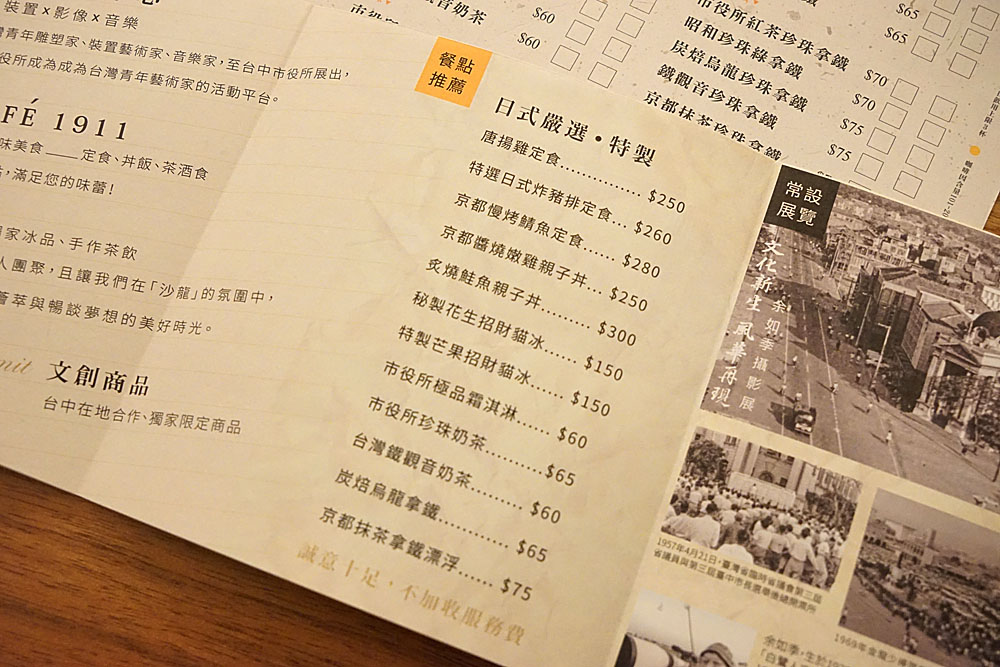 裝置×影像×音樂
青年雕塑家、裝置藝術家、音樂家,至台中市役所展出,
役所成為成為台灣青年藝術家的活動平台。
FÉ 1911
味美食——定食、丼飯、茶酒食
,滿足您的味蕾!
家冰品、手作茶飲
人團聚,且讓我們在「沙龍」的氛圍中,
薈萃與暢談夢想的美好時光。
文創商品
台中在地合作、獨家限定商品
餐點
推薦
日式嚴選・特製
唐揚雞定食............... $250
特選日式炸豬排定食... $260
京都慢烤鯖魚定食...... $280
京都醬燒嫩雞親子丼... $250
炙燒鮭魚親子丼......... $300
秘製花生招財貓冰...... $150
特製芒果招財貓冰...... $150
市役所極品霜淇淋...... $60
市役所珍珠奶茶......... $65
台灣鐵觀音奶茶......... $60
炭焙烏龍拿鐵............ $65
京都抹茶拿鐵漂浮...... $75
誠意十足,不加收服務費
音奶茶 $60
$60
$65
市役所紅茶珍珠拿鐵 $65
昭和珍珠綠拿鐵 $70
炭焙烏龍珍珠拿鐵 $70
鐵觀音珍珠拿鐵 $75
京都抹茶珍珠拿鐵 $75
常設
展覽
文化新生 風華再現
余如季攝影展
1957年4月21日,臺灣省臨時省議會第三屆
省議員與第三屆臺中市長選舉後總開票所
1969年金龍少
余如季,生於19
「白鷺